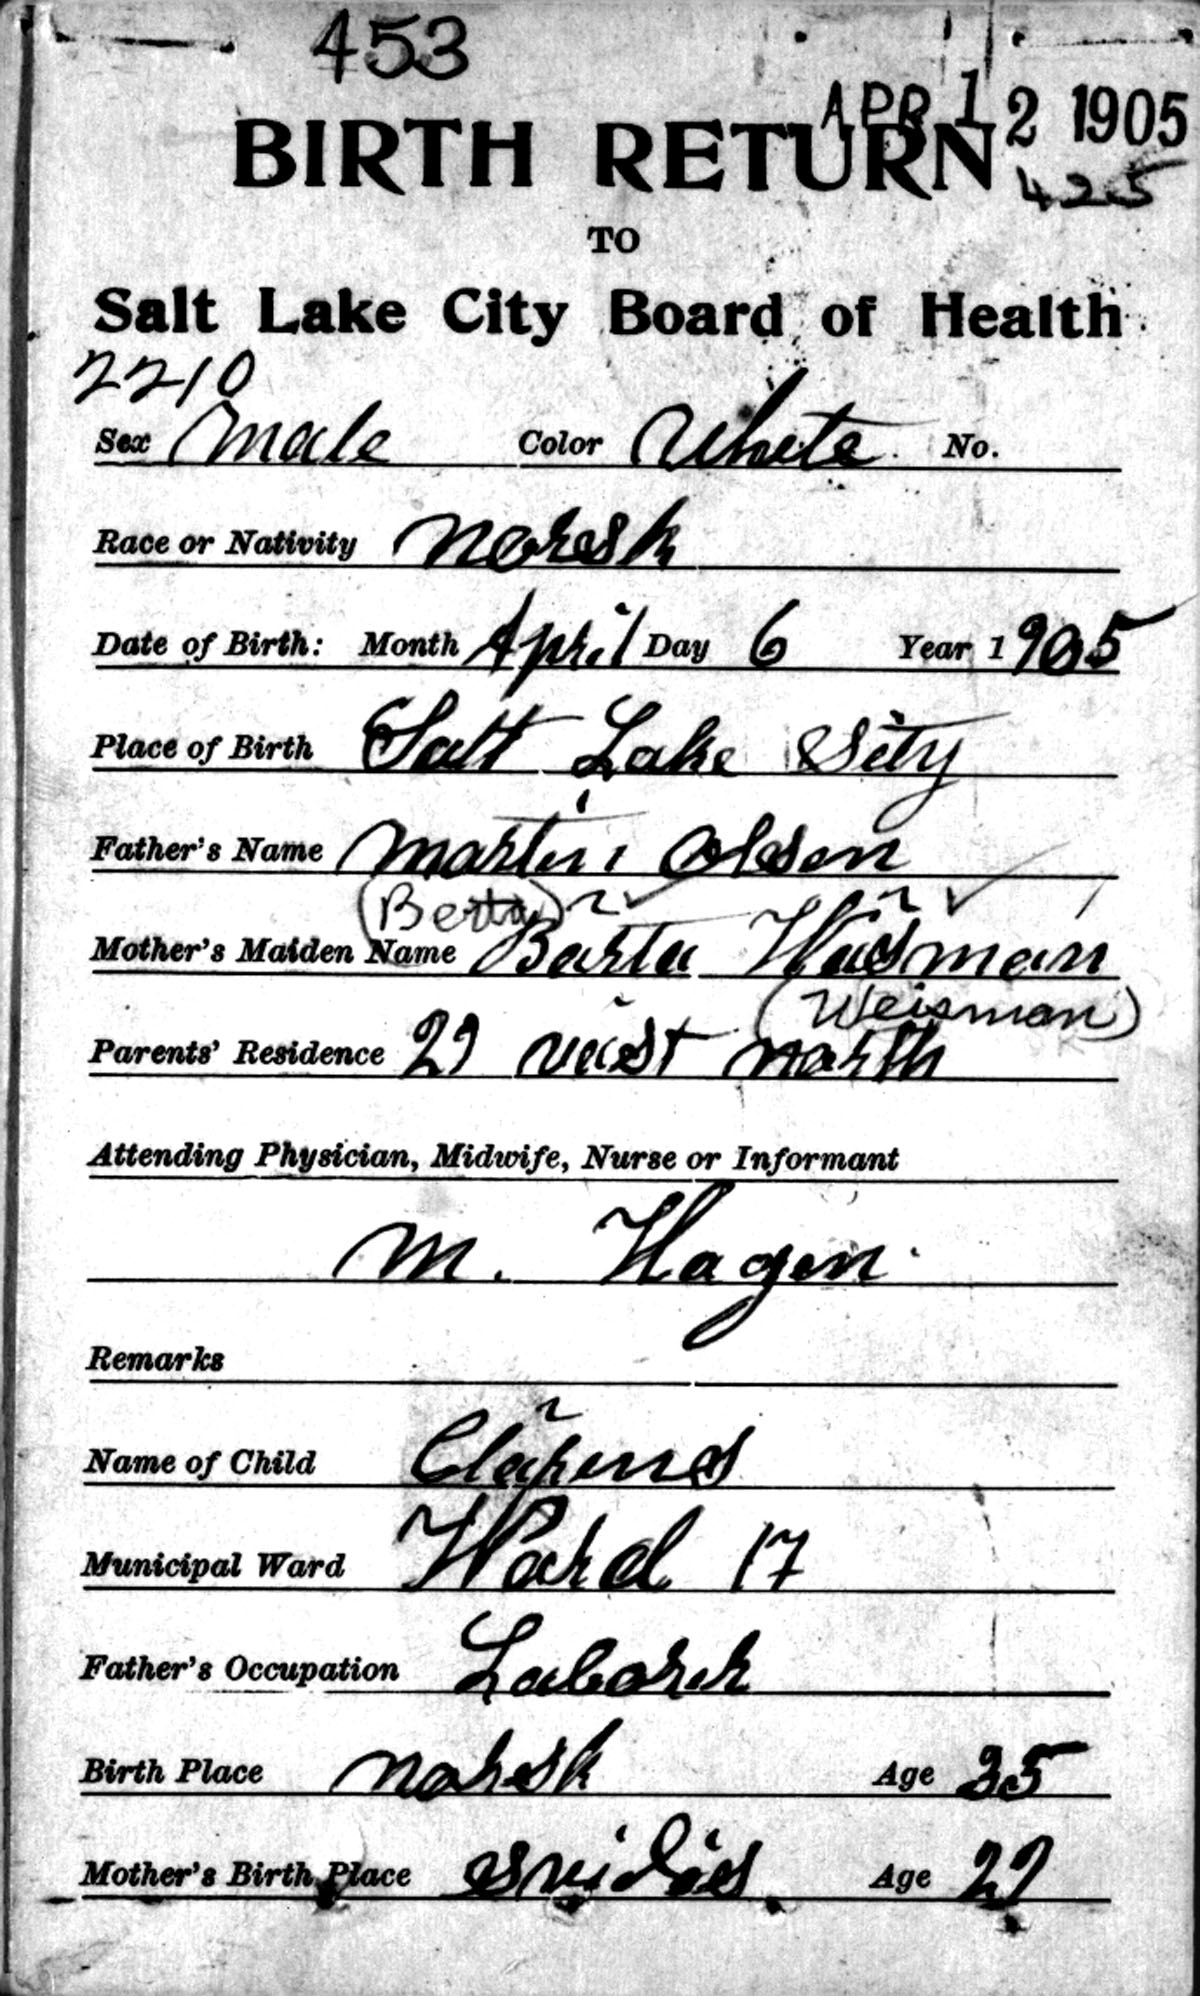 453
APR 12 1905
BIRTH RETURN
425
TO
Salt Lake City Board of Health
2210
Sex Male Color White. No.
Race or Nativity Noresk
Date of Birth: Month April Day 6 Year 1905
Place of Birth Salt Lake Sity
Father's Name Martin Olsen
(Berta)
Mother's Maiden Name Barta Wäsman
(Weisman)
Parents' Residence 29 väist north
Attending Physician, Midwife, Nurse or Informant
M. Hagen
Remarks
Name of Child Clarens
Municipal Ward Ward 17
Father's Occupation Laborer
Birth Place Noresk Age 35
Mother's Birth Place Age 29